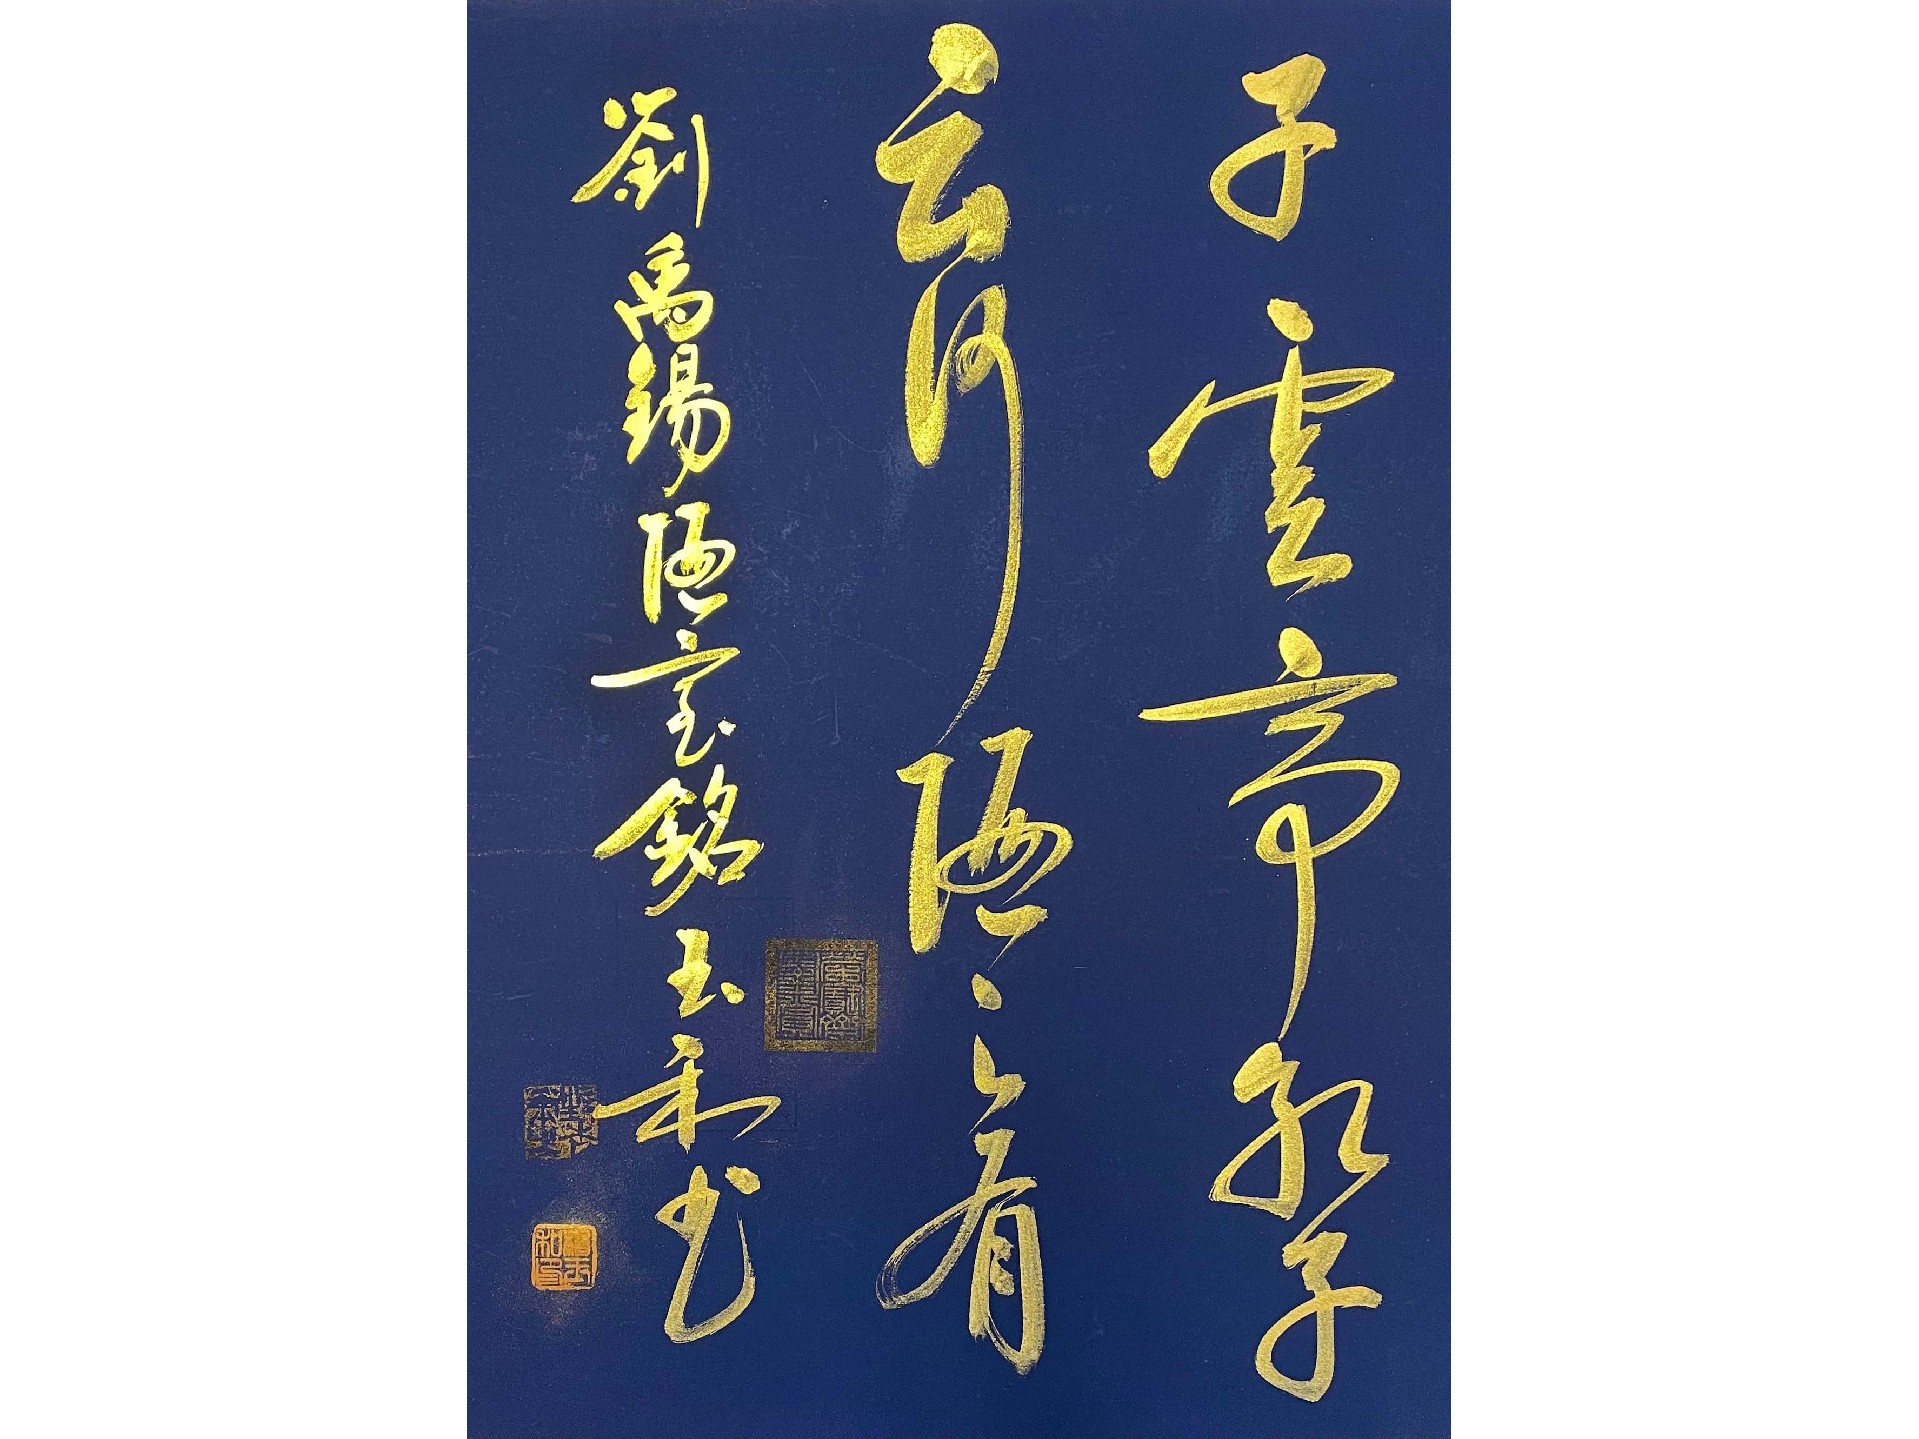 子雲亭孔子
云何陋之有
劉禹錫陋室銘玉和书